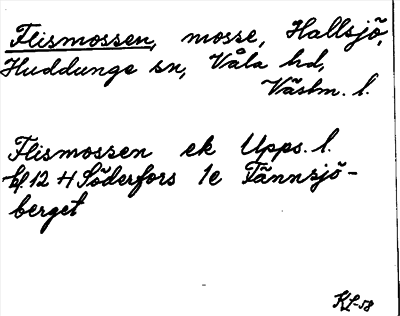 Flismossen, mosse, Hallsjö,
Huddunge sn, Våla hd,
Västm. l.
Flismossen ek Upps. l.
bl. 12 H Söderfors 1e Tännsjö-
berget
KL-58